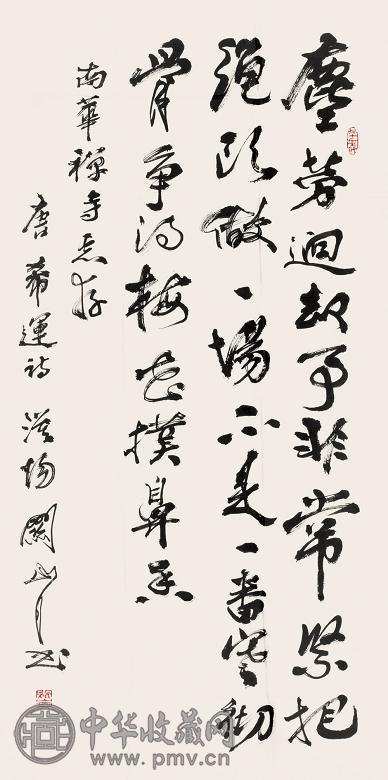 塵勞迴却事非常緊把
繩頭做一場不是一番寒徹
骨争得梅花撲鼻香
南華禪寺惠存
唐希運詩 漠陽關山月书
中华收藏网
www.pmv.cn